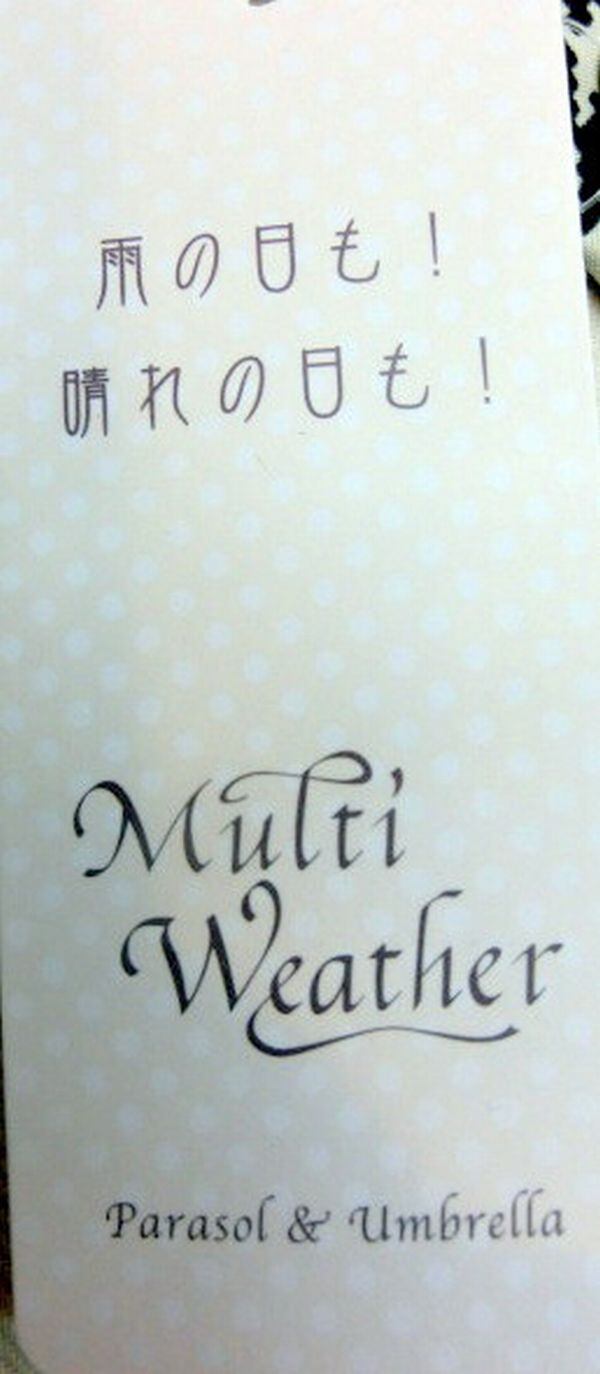 雨の日も！
晴れの日も！
Multi
Weather
Parasol & Umbrella